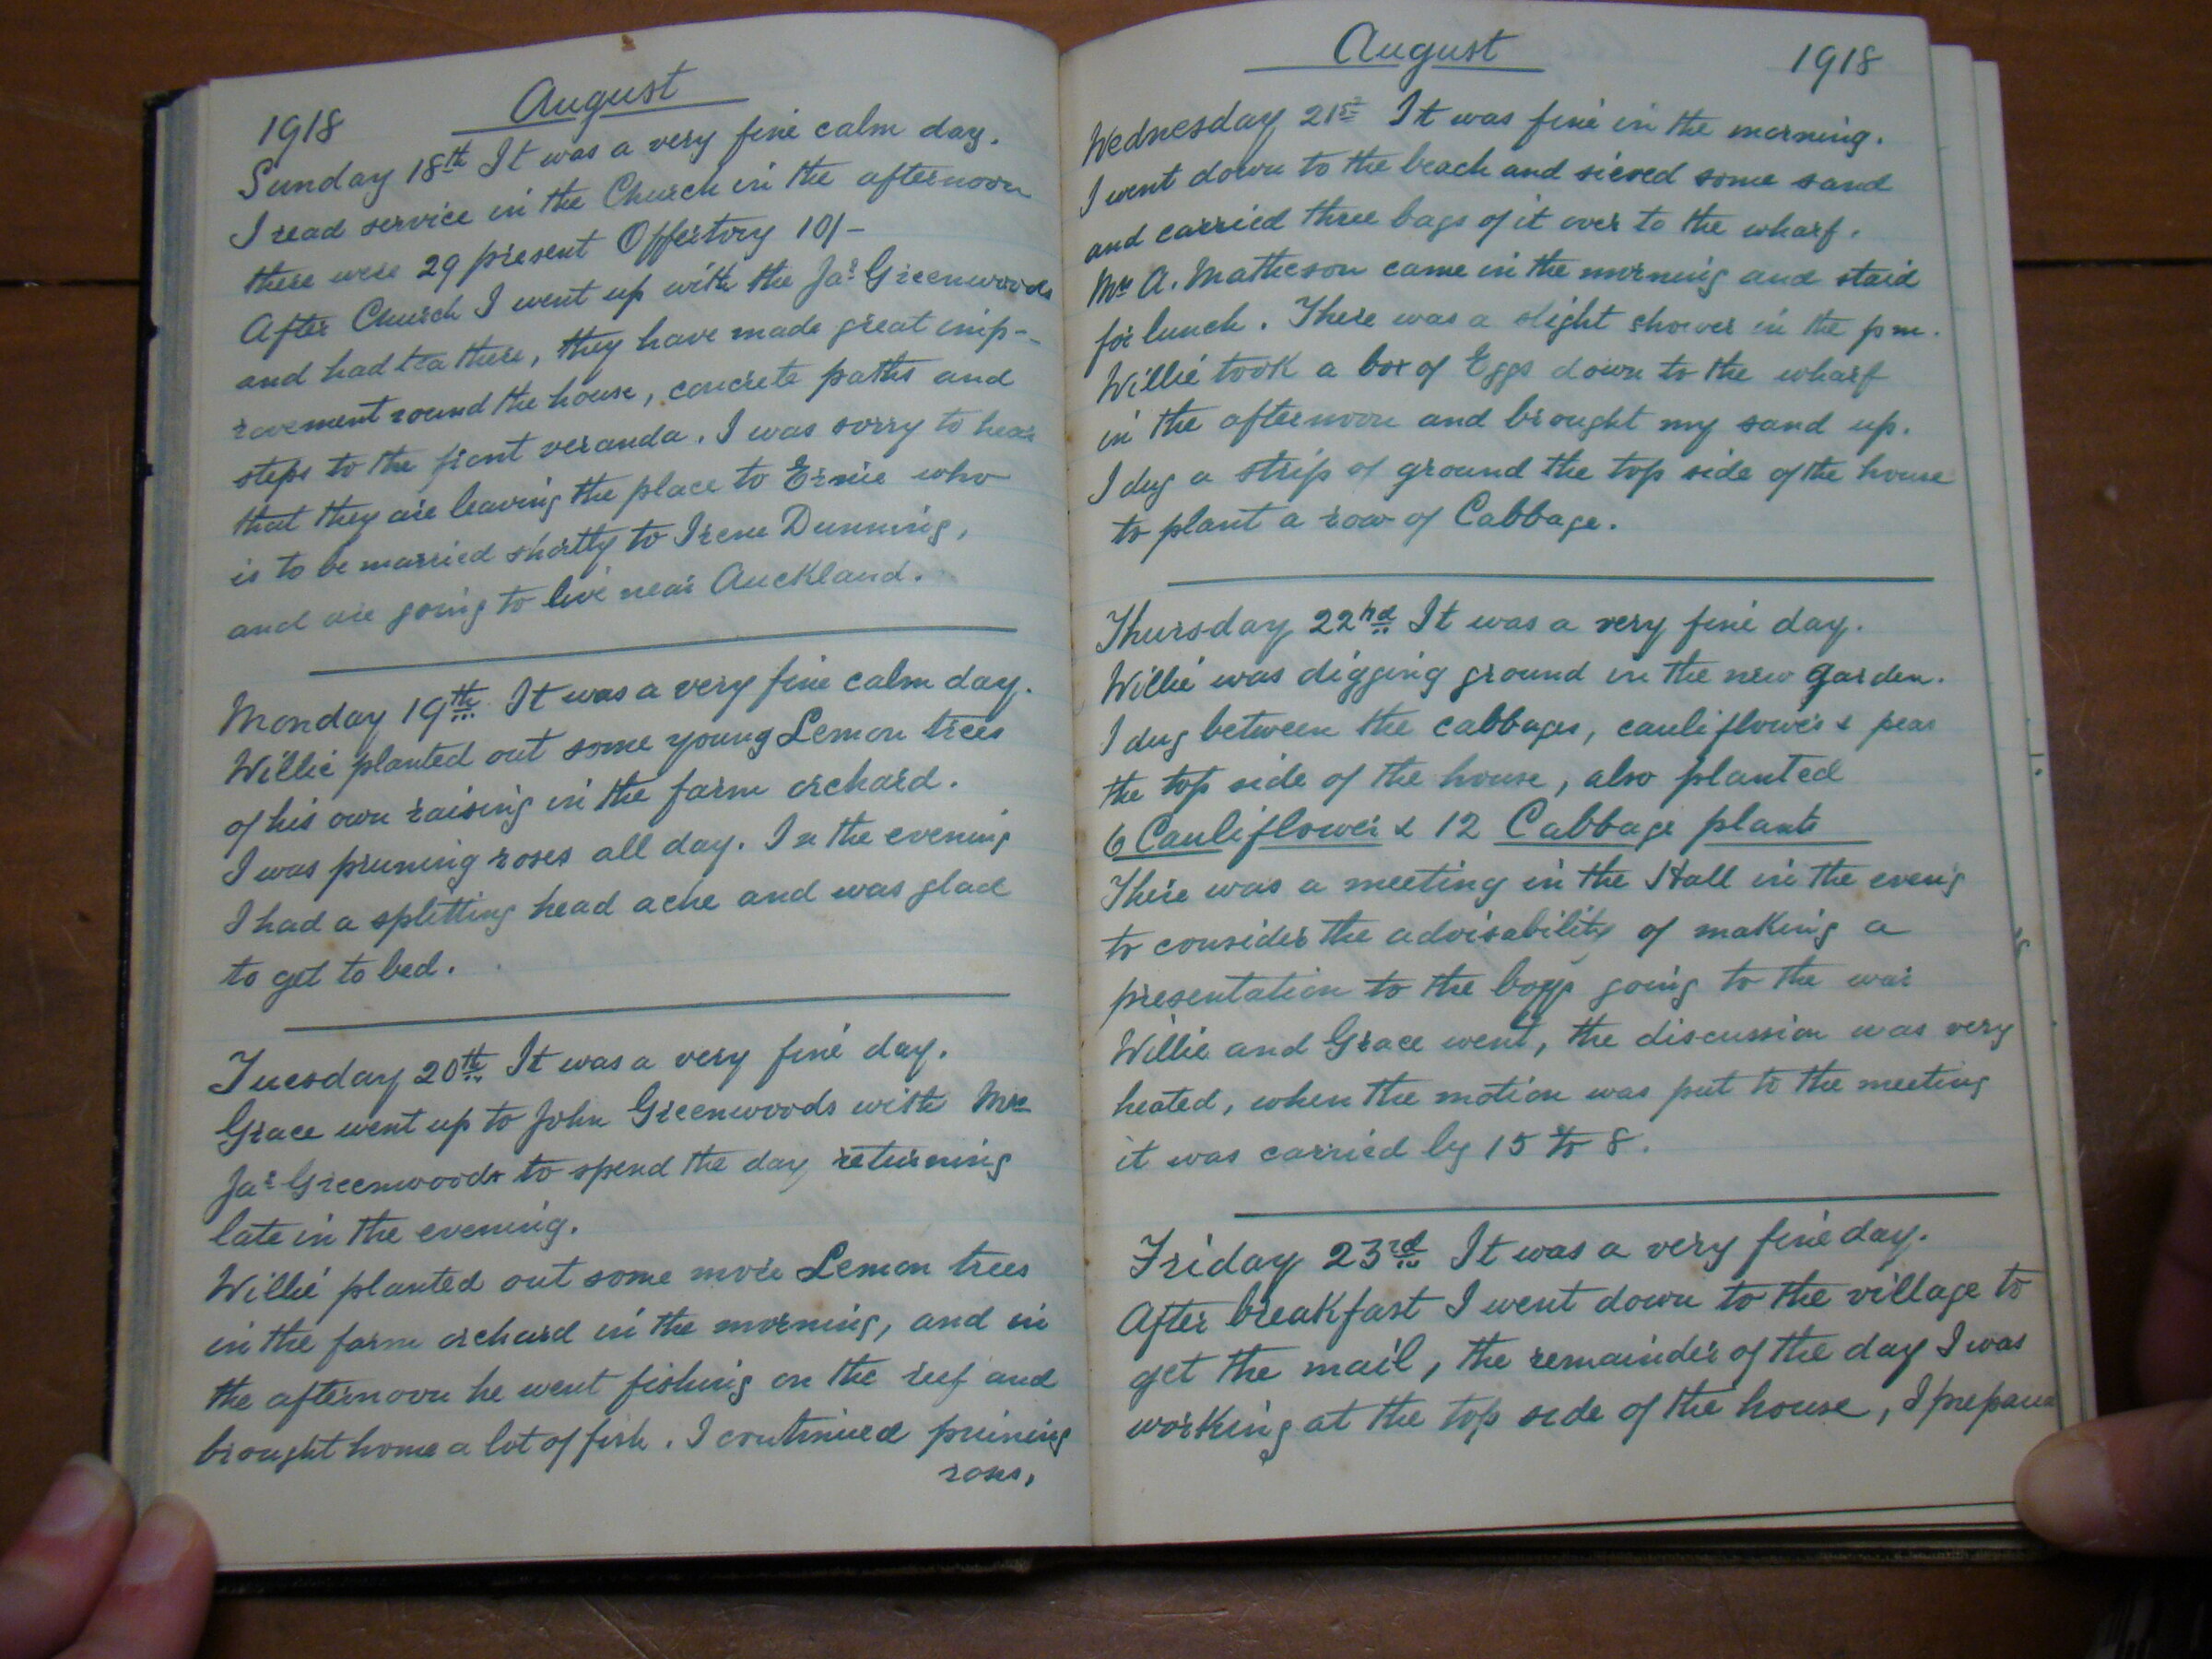 1918
August
Sunday 18th It was a very fine calm day.
I read service in the Church in the afternoon
there were 29 present Offertory 10/-
After Church I went up with the Jas Greenwoods
and had tea there, they have made great imp-
rovement round the house, concrete paths and
steps to the front veranda. I was sorry to hear
that they are leaving the place to Ernie who
is to be married shortly to Irene Dunning,
and are going to live near Auckland.
Monday 19th It was a very fine calm day.
Willie planted out some young Lemon trees
of his own raising in the farm orchard.
I was pruning roses all day. In the evening
I had a splitting head ache and was glad
to get to bed.
Tuesday 20th It was a very fine day.
Grace went up to John Greenwoods with Mrs
Jas Greenwoods to spend the day returning
late in the evening.
Willie planted out some more Lemon trees
in the farm orchard in the morning, and in
the afternoon he went fishing on the reef and
brought home a lot of fish. I continued pruning
roses.
August
1918
Wednesday 21st It was fine in the morning.
I went down to the beach and sieved some sand
and carried three bags of it over to the wharf.
Mr A. Matheson came in the morning and staid
for lunch. There was a slight shower in the pm.
Willie took a box of Eggs down to the wharf
in the afternoon and brought my sand up.
I dug a strip of ground the top side of the house
to plant a row of Cabbage.
Thursday 22nd It was a very fine day.
Willie was digging ground in the new garden.
I dug between the cabbages, cauliflowers & peas
the top side of the house, also planted
6 Cauliflower & 12 Cabbage plants
There was a meeting in the Hall in the eveng
to consider the advisability of making a
presentation to the boys going to the war
Willie and Grace went, the discussion was very
heated, when the motion was put to the meeting
it was carried by 15 to 8.
Friday 23rd It was a very fine day.
After breakfast I went down to the village to
get the mail, the remainder of the day I was
working at the top side of the house, I prepared